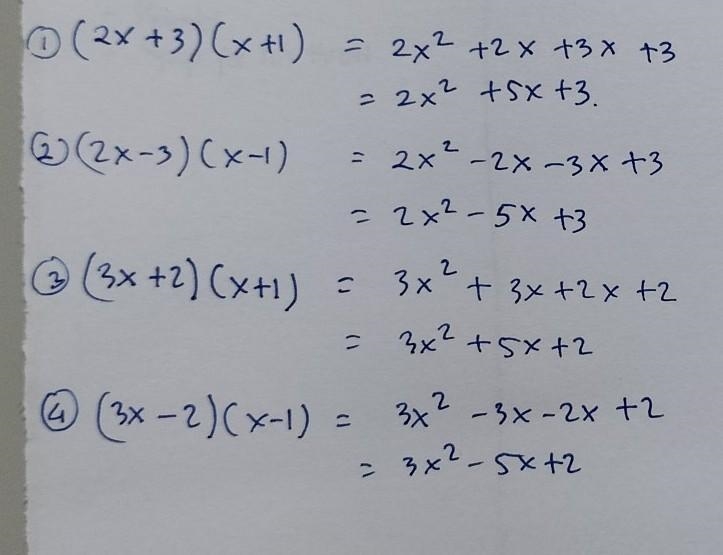 ① (2x+3)(x+1) = 2x² +2x +3x +3
= 2x² +5x+3.
② (2x-3)(x-1) = 2x² -2x -3x +3
= 2x² - 5x +3
③ (3x+2)(x+1) = 3x² + 3x+2x +2
= 3x² +5x+2
④ (3x-2)(x-1) = 3x² -3x-2x +2
= 3x² - 5x+2